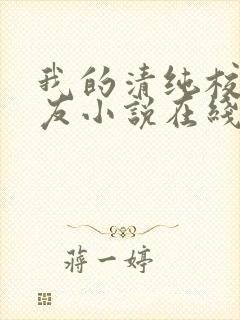 我的清纯校
友小说在线
蒋一婷